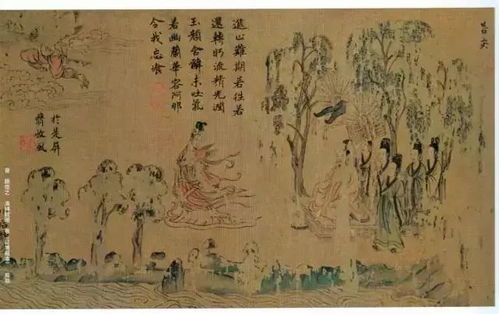 進止難期若往若
還轉眄流精光潤
玉顏含辭未吐氣
若幽蘭華容阿那
令我忘飡
於是屏
翳收風